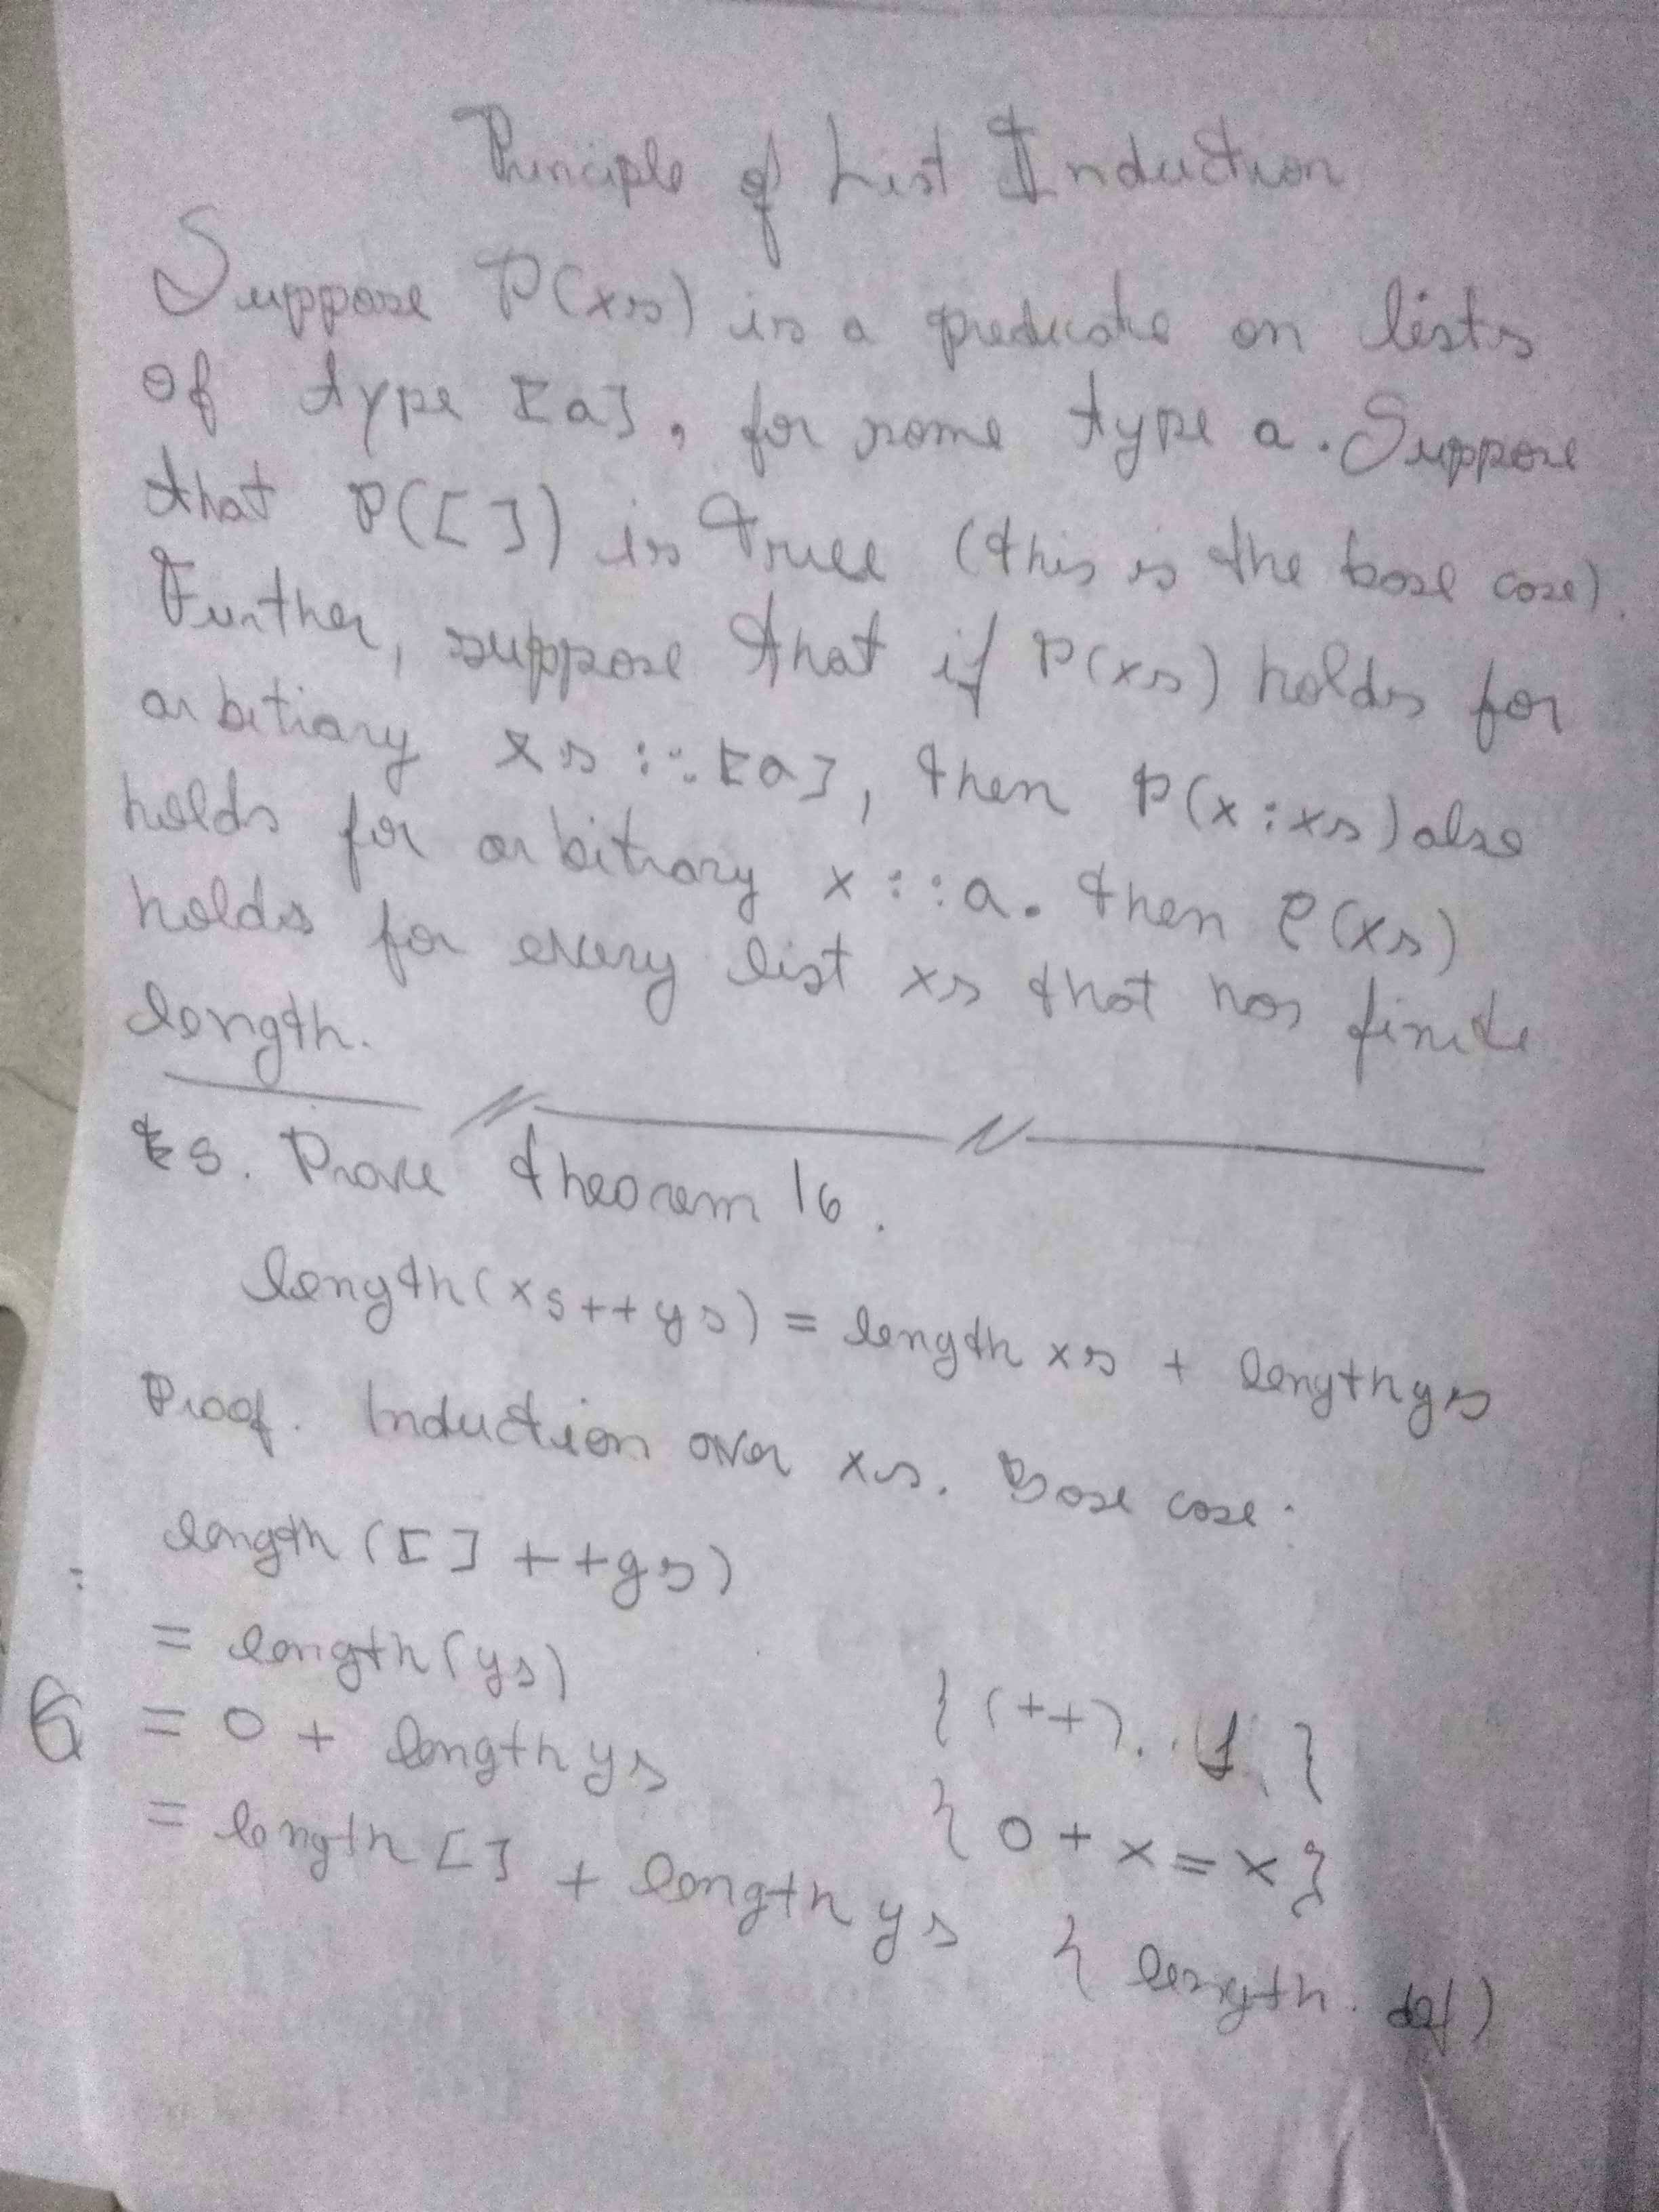 Principle of List Induction
Suppose P(xs) is a predicate on lists
of type [a], for some type a. Suppose
that P([ ]) is true (this is the base case).
Further, suppose that if P(xs) holds for
arbitrary xs :: [a], then P(x:xs) also
holds for arbitrary x :: a. then P(xs)
holds for every list xs that has finite
length.
8. Prove theorem 16.
length(xs++ys) = length xs + length ys
Proof. Induction over xs. Base case:
length ([ ] ++ys)
= length(ys) {(++). 1}
6 = 0 + length ys {0 + x = x}
= length [ ] + length ys { length. def)